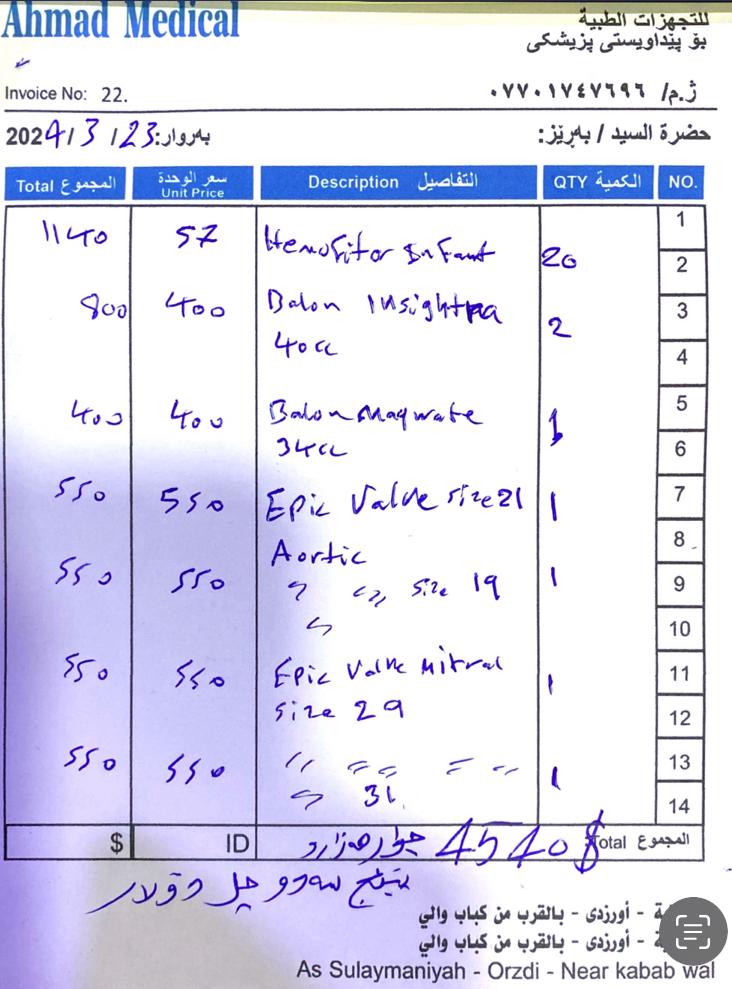 Ahmad Medical
للتجهزات الطبية
بۆ پێداویستی پزیشکی
Invoice No: 22.
ژ.م/ ٠٧٧٠١٧٤٧٦٩٦
بەروار: 2024/3/23
حضرة السيد / بەڕێز:
المجموع Total سعر الوحدة Unit Price Description التفاصيل QTY الكمية NO.
1140 57 Hemofitor Infant 20
800 400 Balon Insight 2
40cc
400 400 Balon Maqwate 1
34cc
550 550 Epic Valve size 21 1
Aortic
550 550 " " size 19 1
"
550 550 Epic Valve Mitral 1
size 29
550 550 " " " " 1
" 31
1
2
3
4
5
6
7
8
9
10
11
12
13
14
$ ID چوار هەزارو 4540$ Total المجموع
پێنج سەدو چل دۆلار
ة - أورزدى - بالقرب من كباب والي
ة - أورزدى - بالقرب من كباب والي
As Sulaymaniyah - Orzdi - Near kabab wal